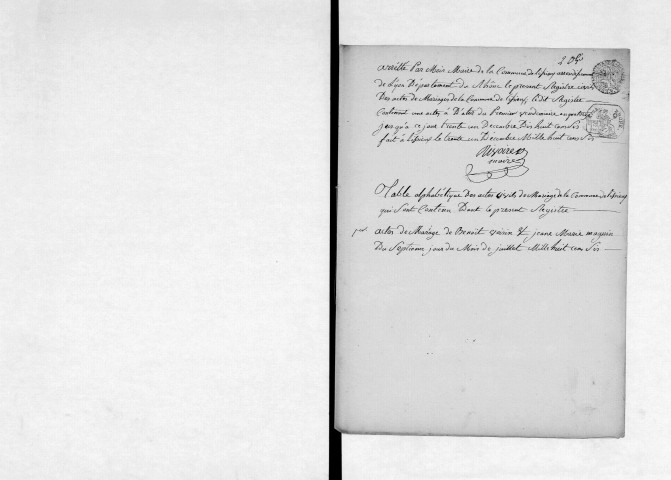 arretté Par Moir Maire de la Commune de
de Lyon Département du Rhône le present Registre
Des actes de Mariages de la Commune de Lissieu, ledit Registre
Contenant un acte, à Dater du Premier vendemiaire an quatorze
jusqu'à ce jour trente un Decembre Dix huit cent Six
fait à Lissieu le trente un Decembre Mille huit cent Six
maire
Table alphabétique Des actes Civils de Mariage de la Commune de Lissieu
qui Sont Contenu Dans le present Registre
actes de Mariage de Benoit voisin & jeane Marie
Du Septieme jour du Mois de juillet Mille huit cent Six